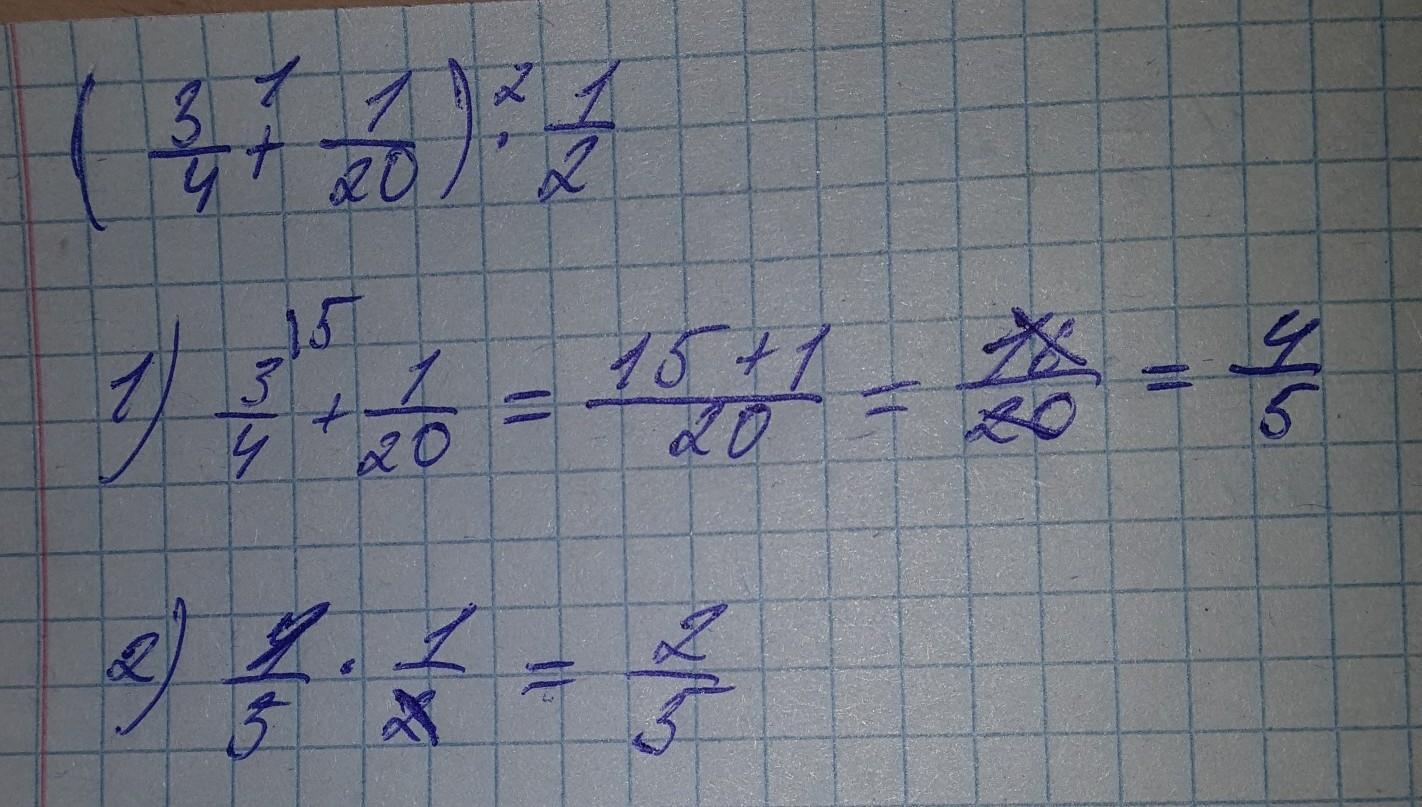 (3/4 +¹ 1/20) ·² 1/2
1) 3/4 ⁽⁵ + 1/20 = 15+1/20 = 16/20 = 4/5
2) 4/5 · 1/2 = 2/5